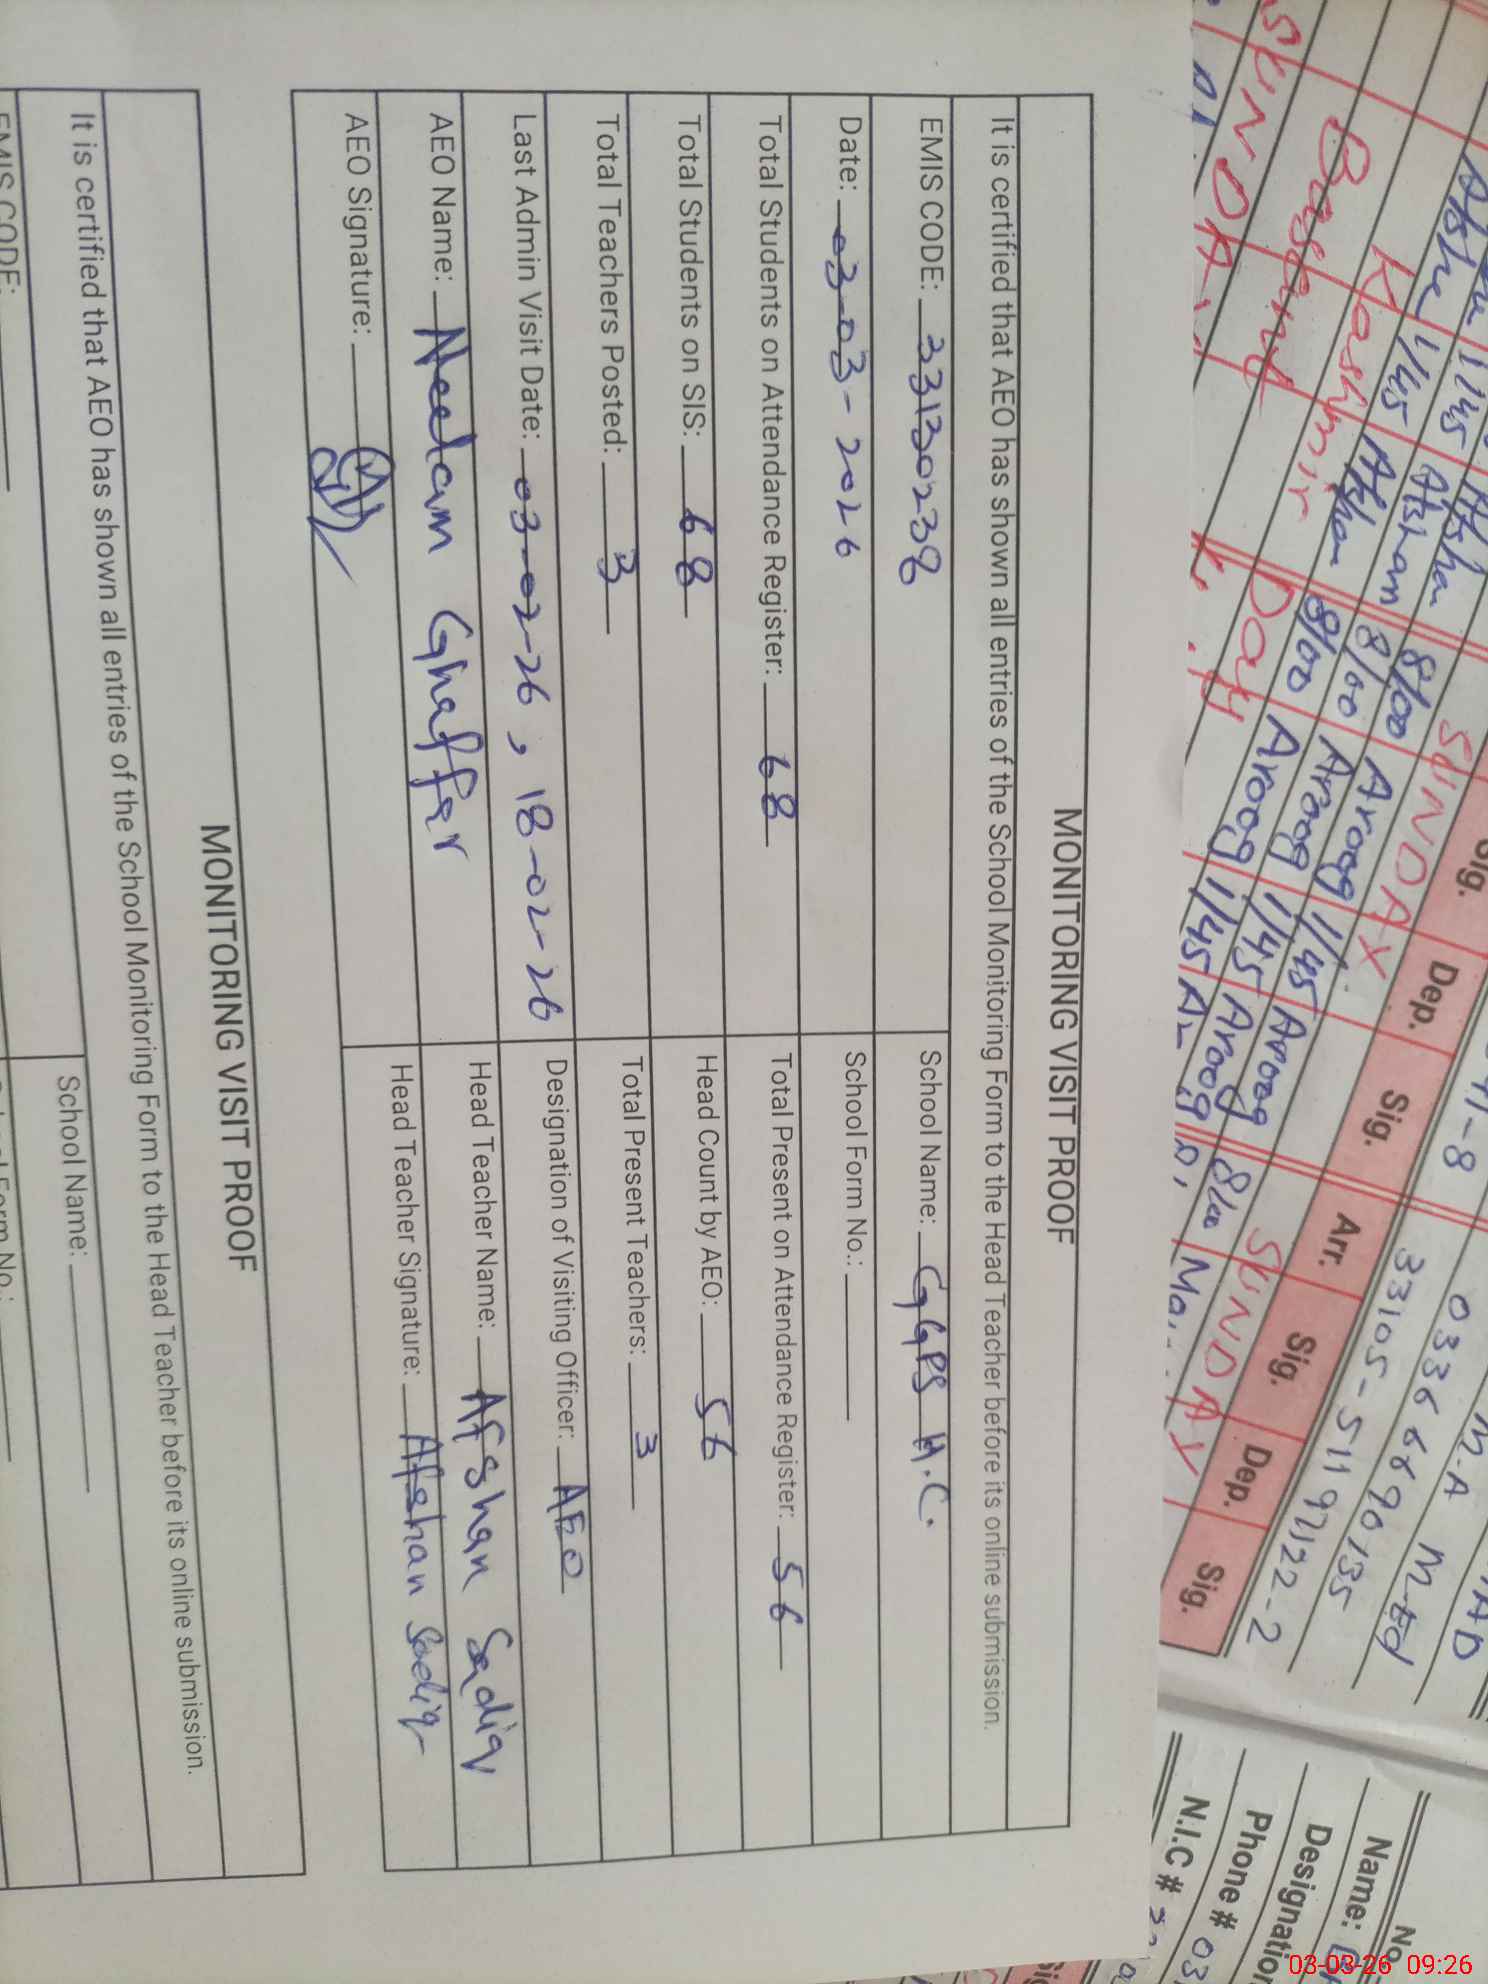 MONITORING VISIT PROOF
It is certified that AEO has shown all entries of the School Monitoring Form to the Head Teacher before its online submission.
EMIS CODE: 33130238 School Name: GGPS H.C.
Date: 03-03-2026 School Form No.:
Total Students on Attendance Register: 68 Total Present on Attendance Register: 56
Total Students on SIS: 68 Head Count by AEO: 56
Total Teachers Posted: 3 Total Present Teachers: 3
Last Admin Visit Date: 03-02-26, 18-02-26 Designation of Visiting Officer: AEO
AEO Name: Neelam Ghaffar Head Teacher Name: Afshan Sadiq
AEO Signature: Head Teacher Signature: Afshan Sadiq
MONITORING VISIT PROOF
It is certified that AEO has shown all entries of the School Monitoring Form to the Head Teacher before its online submission.
EMIS CODE: School Name:
M.A M-Ed
03366890135
33105-5119122-2
Sig. Dep. Sig. Arr. Sig. Dep. Sig.
SUNDAY SUNDAY
1/45 Afshan 8/00 Aroog 1/45 Aroog 8/00
1/45 Afshan 8/00 Aroog 1/45 Aroog
1/45 Afshan 8/00 Aroog 1/45
Kashmir Day
Basant
SUNDAY
Name:
Designation
Phone # 03
N.I.C #
03-03-26 09:26